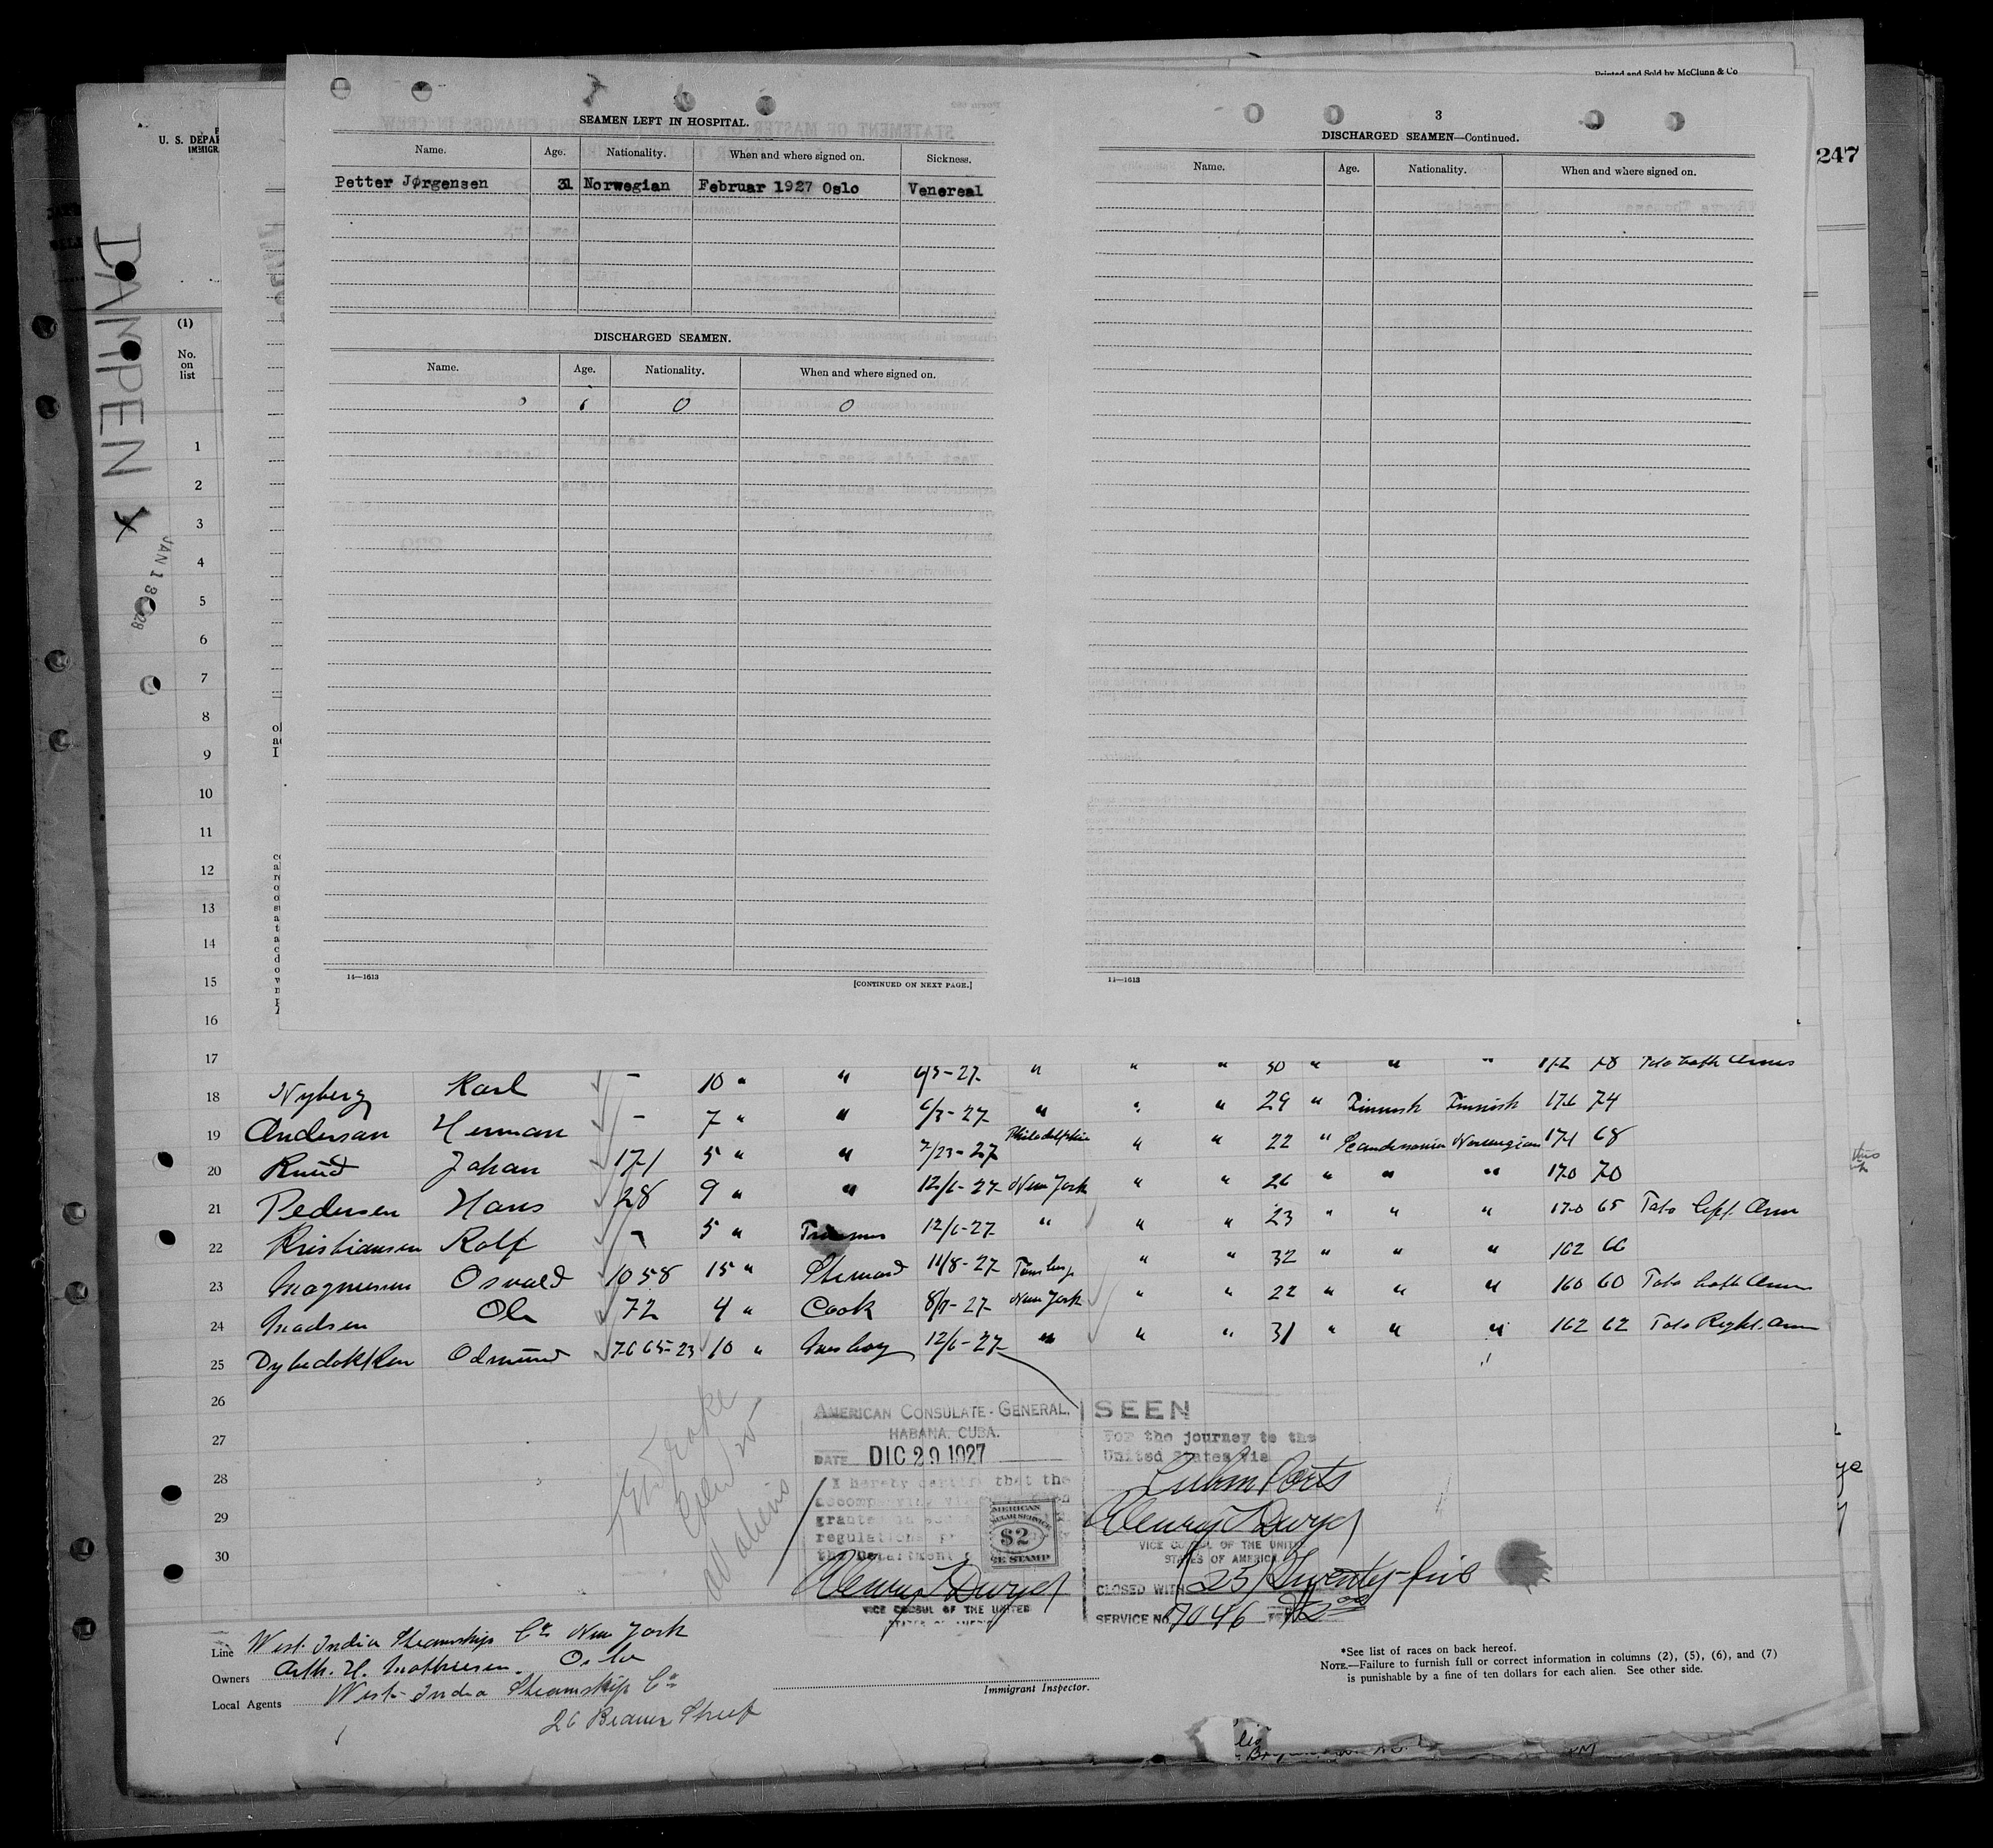 Printed and Sold by McClunn & Co
247
U. S. DEPA
IMMIGR
DAMPEN
X
JAN 18 1928
(1)
No.
on
list
SEAMEN LEFT IN HOSPITAL.
Name. Age. Nationality. When and where signed on. Sickness.
Petter Jørgensen 31 Norwegian Februar 1927 Oslo Venereal
DISCHARGED SEAMEN.
Name. Age. Nationality. When and where signed on.
0 0 0
14—1613
[CONTINUED ON NEXT PAGE.]
3
DISCHARGED SEAMEN—Continued.
Name. Age. Nationality. When and where signed on.
14—1613
1
2
3
4
5
6
7
8
9
10
11
12
13
14
15
16
17
18 Nyberg Karl – 10 " " 6/3-27 " " " 30 " " " 172 78 Tato both Arms
19 Andersan Herman – 7 " " 6/3-27 " " " 29 " Finnish Finnish 176 74
20 Knud Johan 171 5 " " 7/23-27 Philadelphia " " 22 " Scandinavia Norwegian 171 68
21 Pedersen Hans 28 9 " " 12/6-27 New York " " 26 " " " 170 70
22 Kristiansen Rolf – 5 " 12/6-27 " " " 23 " " " 170 65 Tato left Arm
23 Magnussen Osvald 1058 15 " Steward 11/8-27 Tønsberg " " 32 " " " 162 66
24 Madsen Ole 72 4 " Cook 8/7-27 New York " " 22 " " " 160 60 Tato both Arms
25 Dybedokken Odmund 7665-23 10 " Messboy 12/6-27 " " " 31 " " " 162 62 Tato Right Arm
26
27
28
29
30
all aliens
AMERICAN CONSULATE-GENERAL,
HABANA, CUBA.
DATE DIC 29 1927
I hereby certify that the
accompanying
granted
regulations
the Department
AMERICAN
$2
FEE STAMP
Henry T Dwyer
VICE CONSUL OF THE UNITED
STATES OF AMERICA
SEEN
For the journey to the
United States via
Cuban Ports
Henry T Dwyer
VICE CONSUL OF THE UNITED
STATES OF AMERICA
CLOSED WITH 25 / Twenty-five
SERVICE No. 7046 FEE $2.00
Line West India Steamship Co New York
Owners Arth. H. Mathiesen. Oslo
Local Agents West-India Steamship Co
26 Beaver Street
Immigrant Inspector.
*See list of races on back hereof.
NOTE.—Failure to furnish full or correct information in columns (2), (5), (6), and (7)
is punishable by a fine of ten dollars for each alien. See other side.